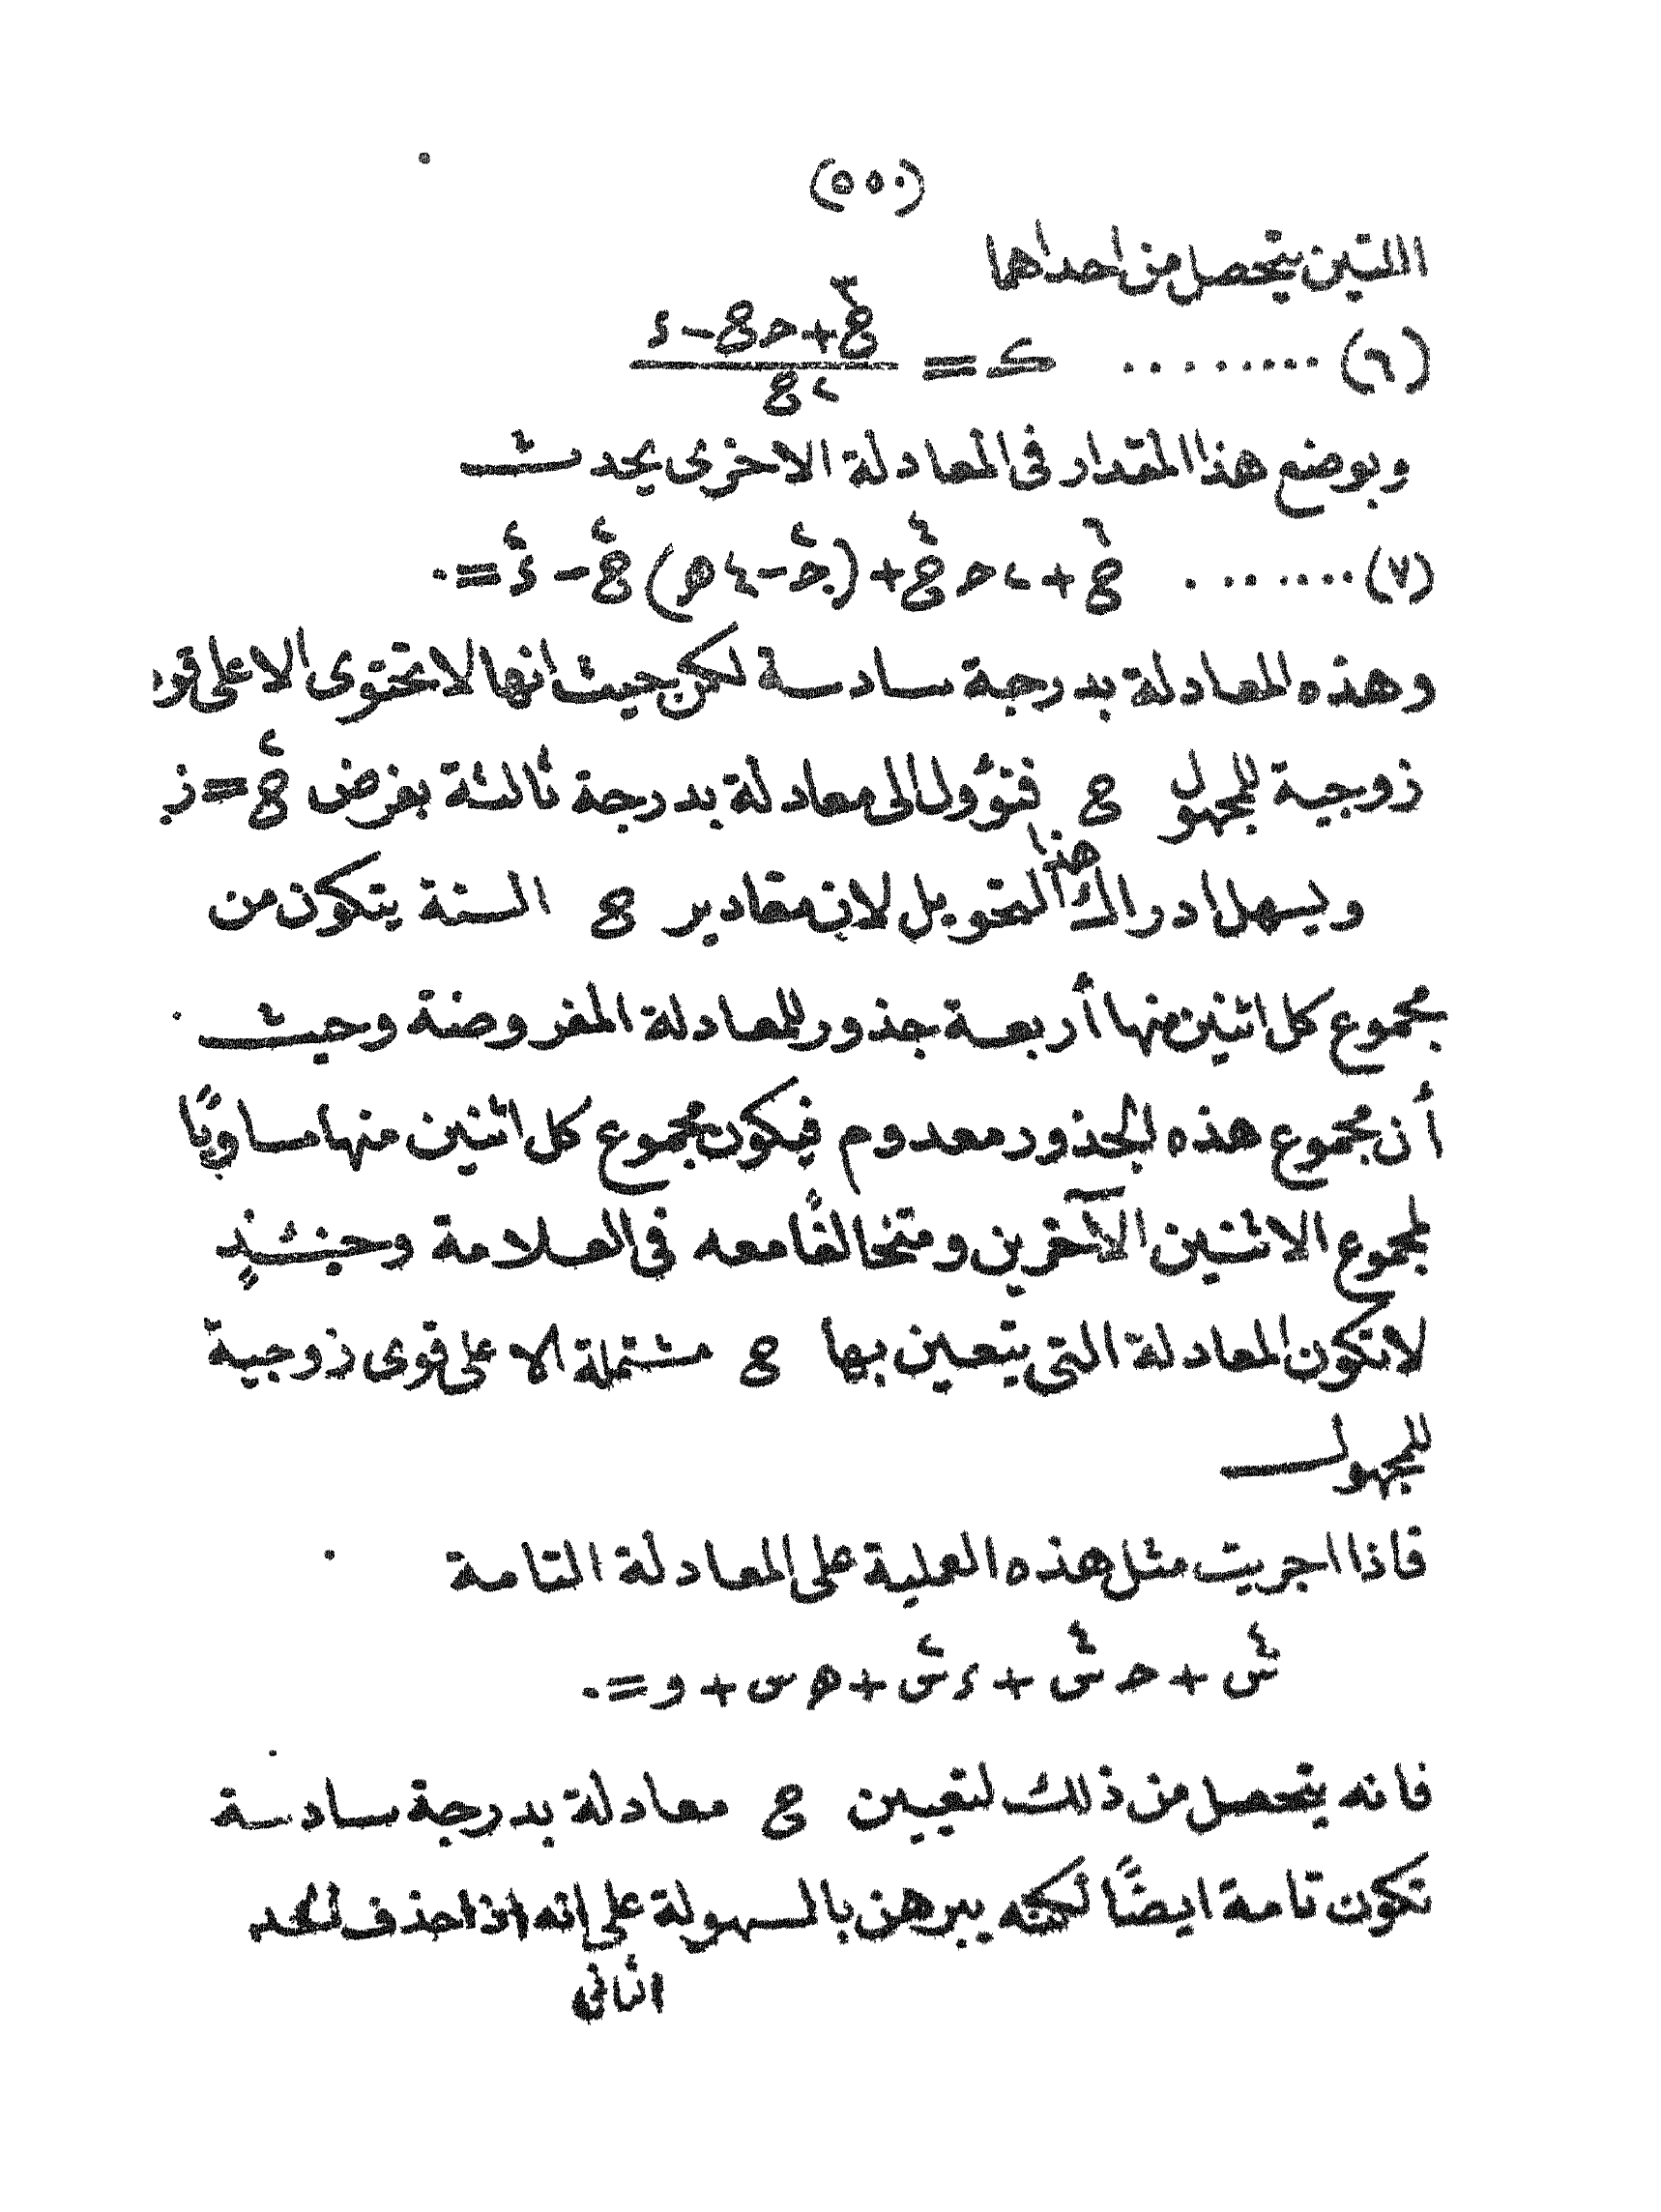 (٥٥٠)
اللتين يتحصل من احداهما
(٦) ......... ک = (ع٣+حع-د)/(٢ع)
وبوضع هذا المقدار فى المعادلة الاخرى يحدث
(٧) ....... ع٦ + ٢حع٤ + (ح٢-٤ه)ع٢ - د٢ = ٠
وهذه المعادلة بدرجة سادسة لكن حيث انها لا تحتوى الا على قوى
زوجية للمجهول ع فتؤول الى معادلة بدرجة ثالثة بفرض ع٢=ز
ويسهل ادراك هذا التحويل لان مقادير ع الستة يتكون من
مجموع كل اثنين منها أربعة جذور للمعادلة المفروضة وحيث
أن مجموع هذه الجذور معدوم فيكون مجموع كل اثنين منها مساويًا
لمجموع الاثنين الآخرين ومتخالفًا معه فى العلامة وحينئذٍ
لا تكون المعادلة التى يتعين بها ع مشتملة الا على قوى زوجية
للمجهول
فاذا اجريت مثل هذه العملية على المعادلة التامة
س٤ + حس٣ + دس٢ + هس + و = ٠
فانه يتحصل من ذلك لتعيين ع معادلة بدرجة سادسة
تكون تامة ايضًا لكنه يبرهن بالسهولة على انه اذا حذف الحد
الثانى